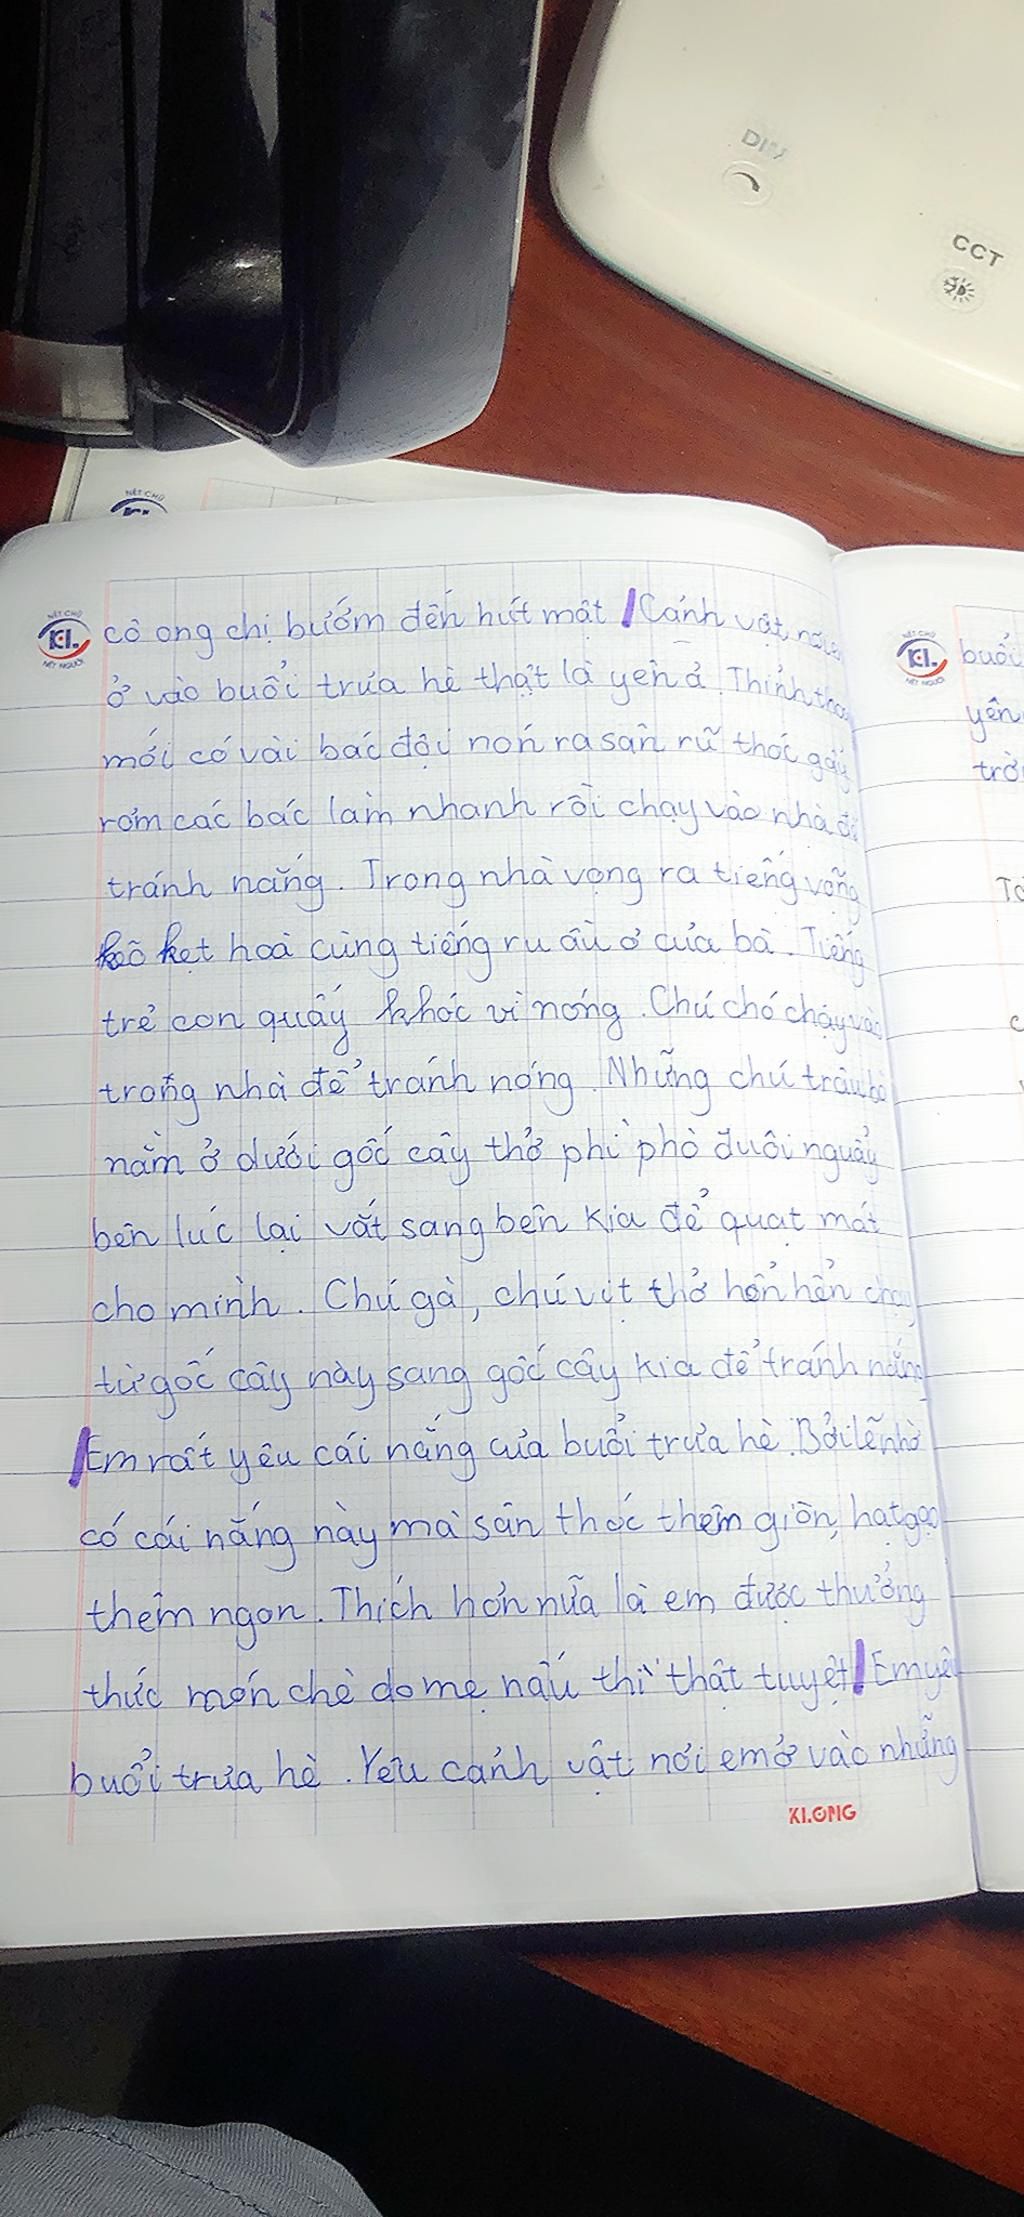 DIM
CCT
NÉT CHỮ
NÉT CHỮ
KL
NÉT NGƯỜI
cô ong chị bướm đến hút mật / Cảnh vật nơi em
ở vào buổi trưa hè thật là yên ả. Thỉnh thoả
mới có vài bác đội nón ra sân rũ thóc gảy
rơm các bác làm nhanh rồi chạy vào nhà để
tránh nắng. Trong nhà vọng ra tiếng võng
kẽo kẹt hoà cùng tiếng ru ầu ơ của bà. Tiếng
trẻ con quấy khóc vì nóng. Chú chó chạy vào
trong nhà để tránh nóng. Những chú trâu bò
nằm ở dưới gốc cây thở phì phò đuôi nguẩy
bên lúc lại vắt sang bên kia để quạt mát
cho mình. Chú gà, chú vịt thở hổn hển chạy
từ gốc cây này sang gốc cây kia để tránh nắng
/ Em rất yêu cái nắng của buổi trưa hè. Bởi lẽ nhờ
có cái nắng này mà sân thóc thêm giòn, hạt gạo
thêm ngon. Thích hơn nữa là em được thưởng
thức món chè do mẹ nấu thì thật tuyệt / Em yêu
buổi trưa hè. Yêu cảnh vật nơi em ở vào những
KLONG
NÉT CHỮ
KL
NÉT NGƯỜI
buổi
yên
trời